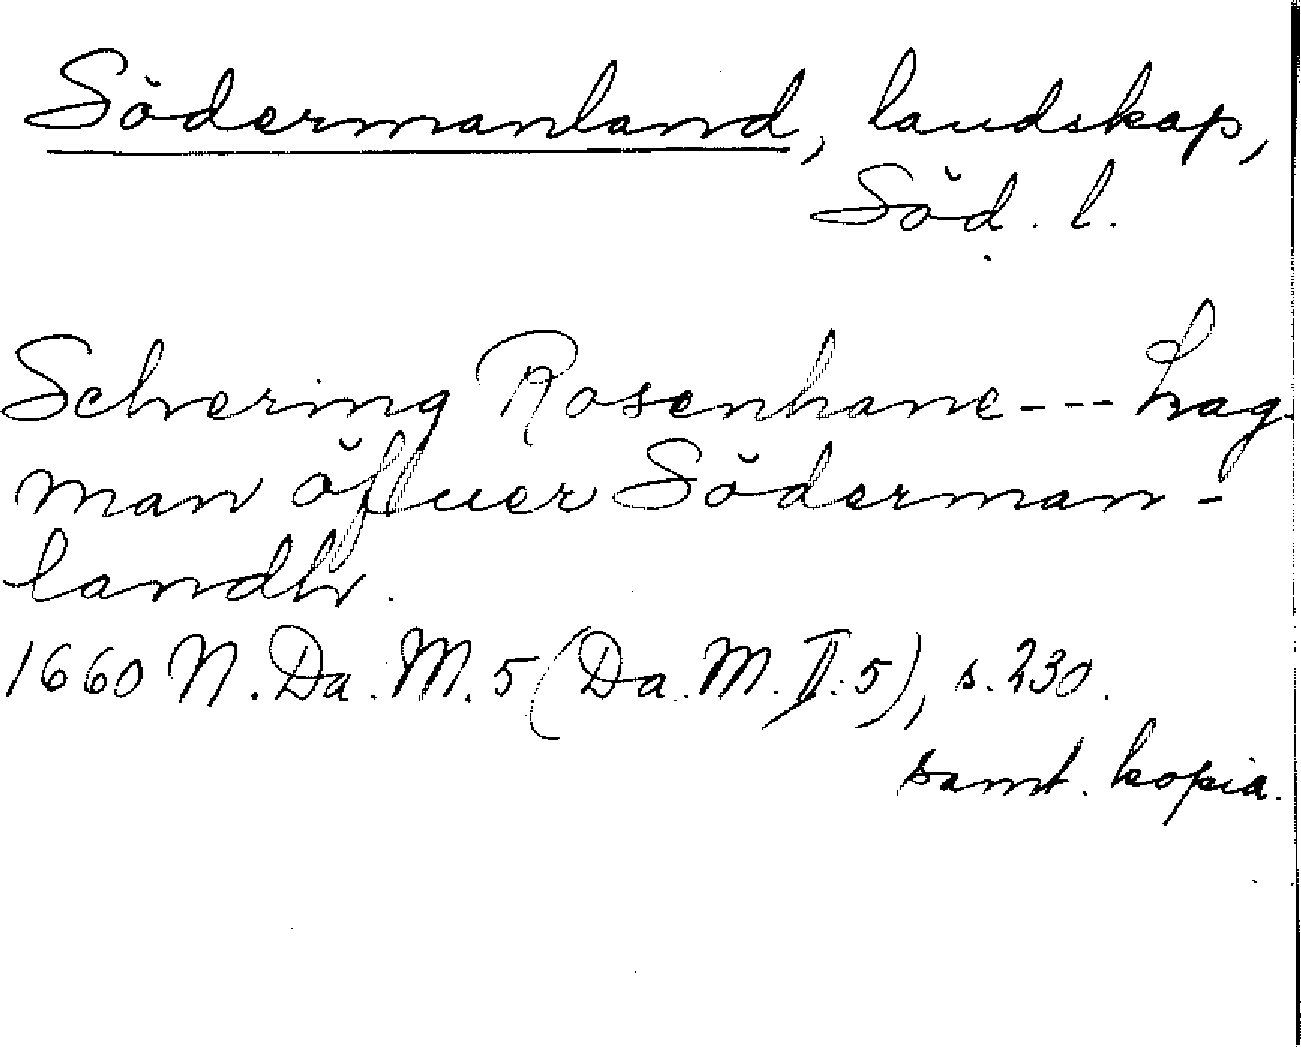 Södermanland, landskap,
Söd. l.
Schering Rosenhane --- Lag-
man öfuer Söderman-
landh.
1660 N. Da. M. 5 (Da. M. II:5), s. 230.
samt. kopia.